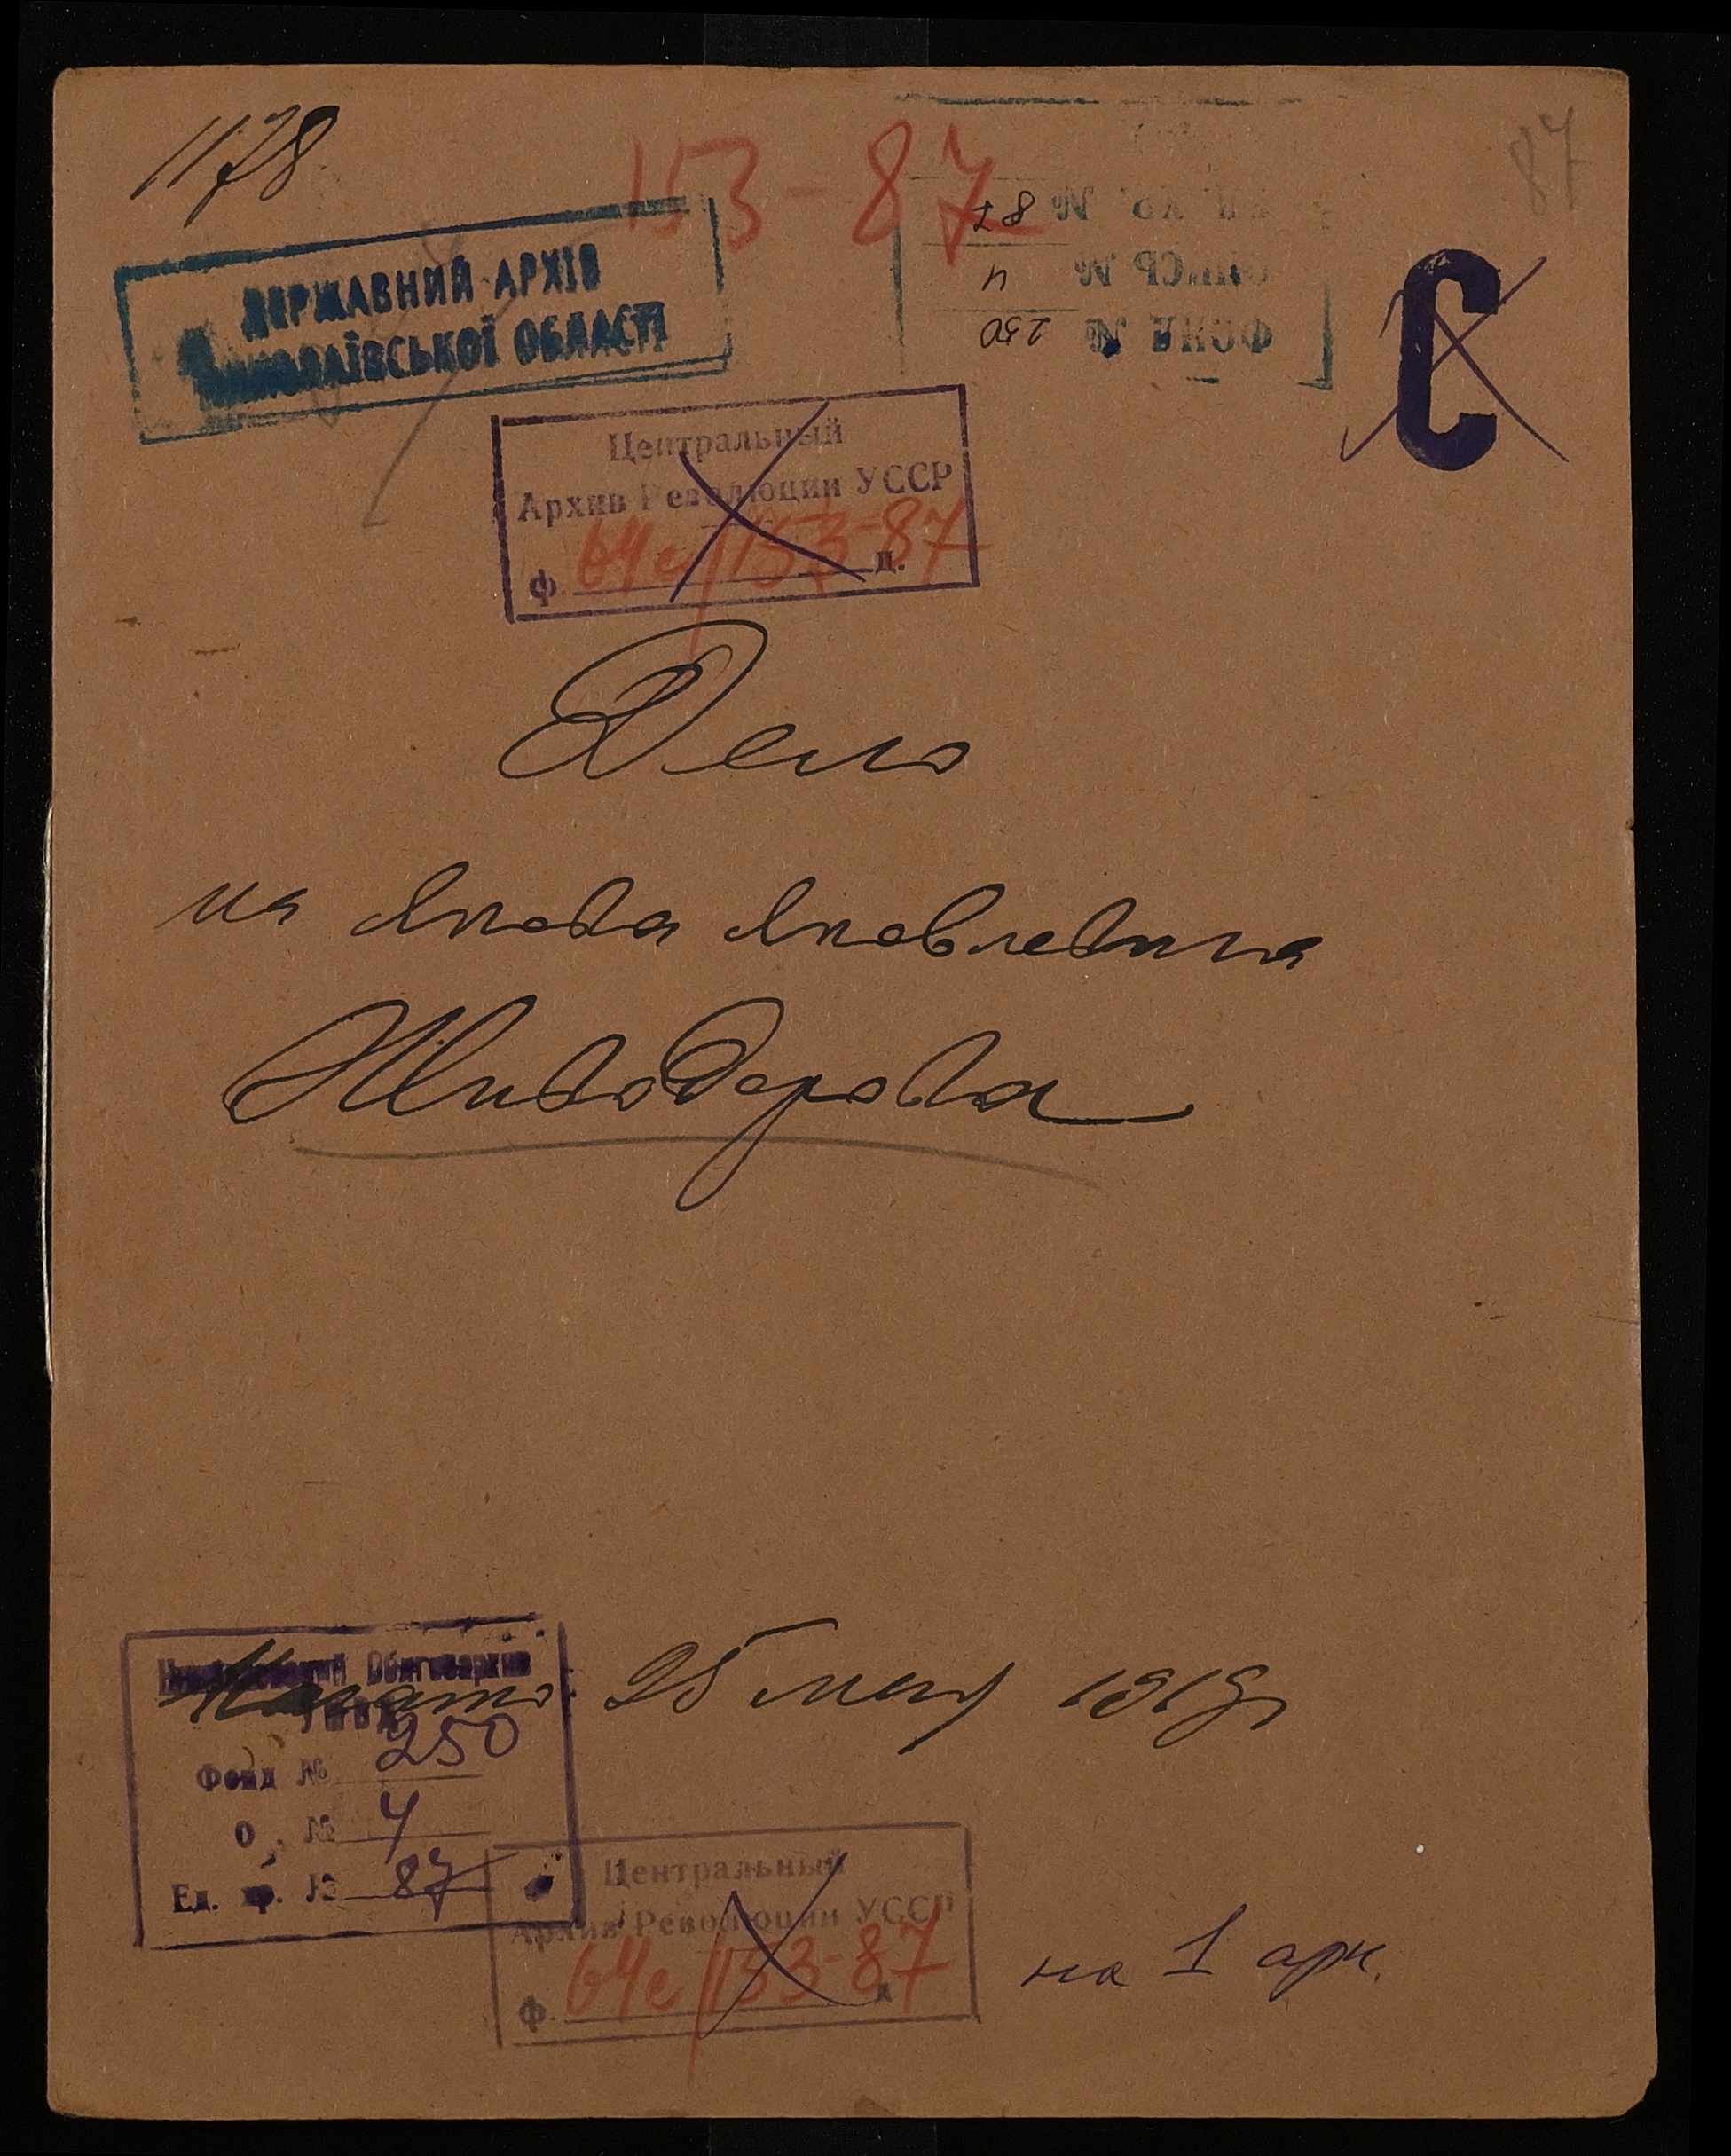 1178
153-87
87
ДЕРЖАВНИЙ АРХІВ
МИКОЛАЇВСЬКОЇ ОБЛАСТІ
ЕД. ХР. № 87
ОПИСЬ № 4
ФОНД № 250
С
Центральный
Архив Революции УССР
ф. 64с/153-87 д.
Дело
на Якова Яковлевича
Живодерова
Начато 25 мая 1919 г
Николаевский Облгосархив
Фонд № 250
О № 4
Ед. хр. № 87
Центральный
Архив Революции УССР
ф. 64с/153-87 д
на 1 арк.